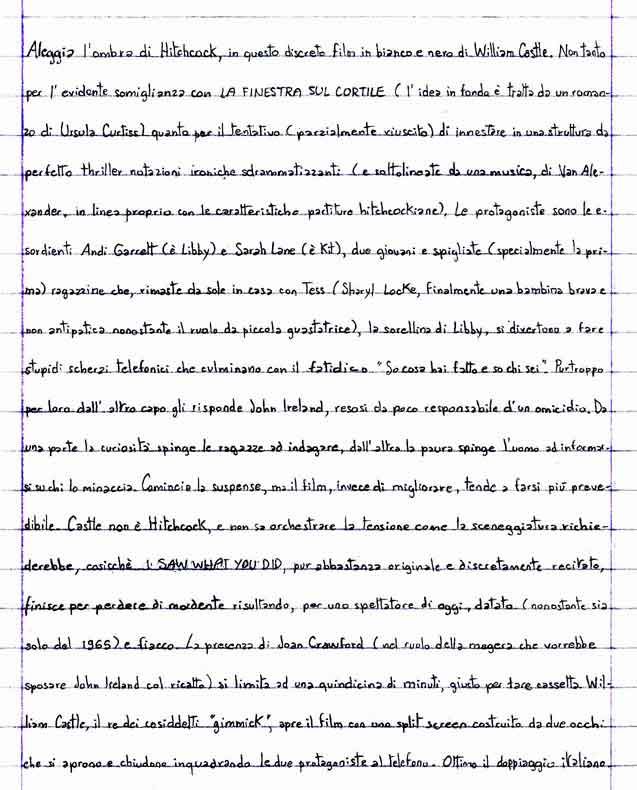 Aleggia l'ombra di Hitchcock, in questo discreto film in bianco e nero di William Castle. Non tanto
per l'evidente somiglianza con LA FINESTRA SUL CORTILE (l'idea in fondo è tratta da un roman-
zo di Ursula Curtiss) quanto per il tentativo (parzialmente riuscito) di innestare in una struttura da
perfetto thriller notazioni ironiche sdrammatizzanti (e sottolineate da una musica, di Van Ale-
xander, in linea proprio con le caratteristiche partiture hitchcockiane). Le protagoniste sono le e-
sordienti Andi Garrett (è Libby) e Sarah Lane (è Kit), due giovani e spigliate (specialmente la pri-
ma) ragazzine che, rimaste da sole in casa con Tess (Sharyl Locke, finalmente una bambina brava e
non antipatica nonostante il ruolo da piccola guastatrice), la sorellina di Libby, si divertono a fare
stupidi scherzi telefonici che culminano con il fatidico "So cosa hai fatto e so chi sei". Purtroppo
per loro dall'altro capo gli risponde John Ireland, resosi da poco responsabile d'un omicidio. Da
una parte la curiosità spinge le ragazze ad indagare, dall'altra la paura spinge l'uomo ad informar-
si su chi lo minaccia. Comincia la suspense, ma il film, invece di migliorare, tende a farsi più preve-
dibile. Castle non è Hitchcock, e non sa orchestrare la tensione come la sceneggiatura richie-
derebbe, cosicchè I SAW WHAT YOU DID, pur abbastanza originale e discretamente recitato,
finisce per perdere di mordente risultando, per uno spettatore di oggi, datato (nonostante sia
solo del 1965) e fiacco. La presenza di Joan Crawford (nel ruolo della megera che vorrebbe
sposare John Ireland col ricatto) si limita ad una quindicina di minuti, giusto per fare cassetta. Wil-
liam Castle, il re dei cosiddetti "gimmick", apre il film con uno split screen costruito da due occhi
che si aprono e chiudono inquadrando le due protagoniste al telefono. Ottimo il doppiaggio italiano.